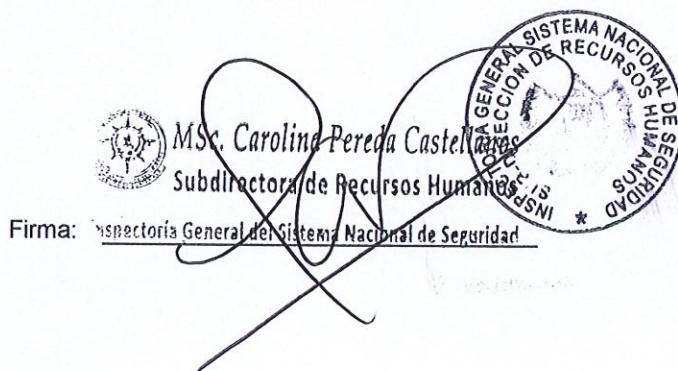 MSc. Carolina Pereda Castellanos
Subdirectora de Recursos Humanos
Firma: Inspectoría General del Sistema Nacional de Seguridad
INSPECTORIA GENERAL SISTEMA NACIONAL DE SEGURIDAD
DIRECCION DE RECURSOS HUMANOS
*